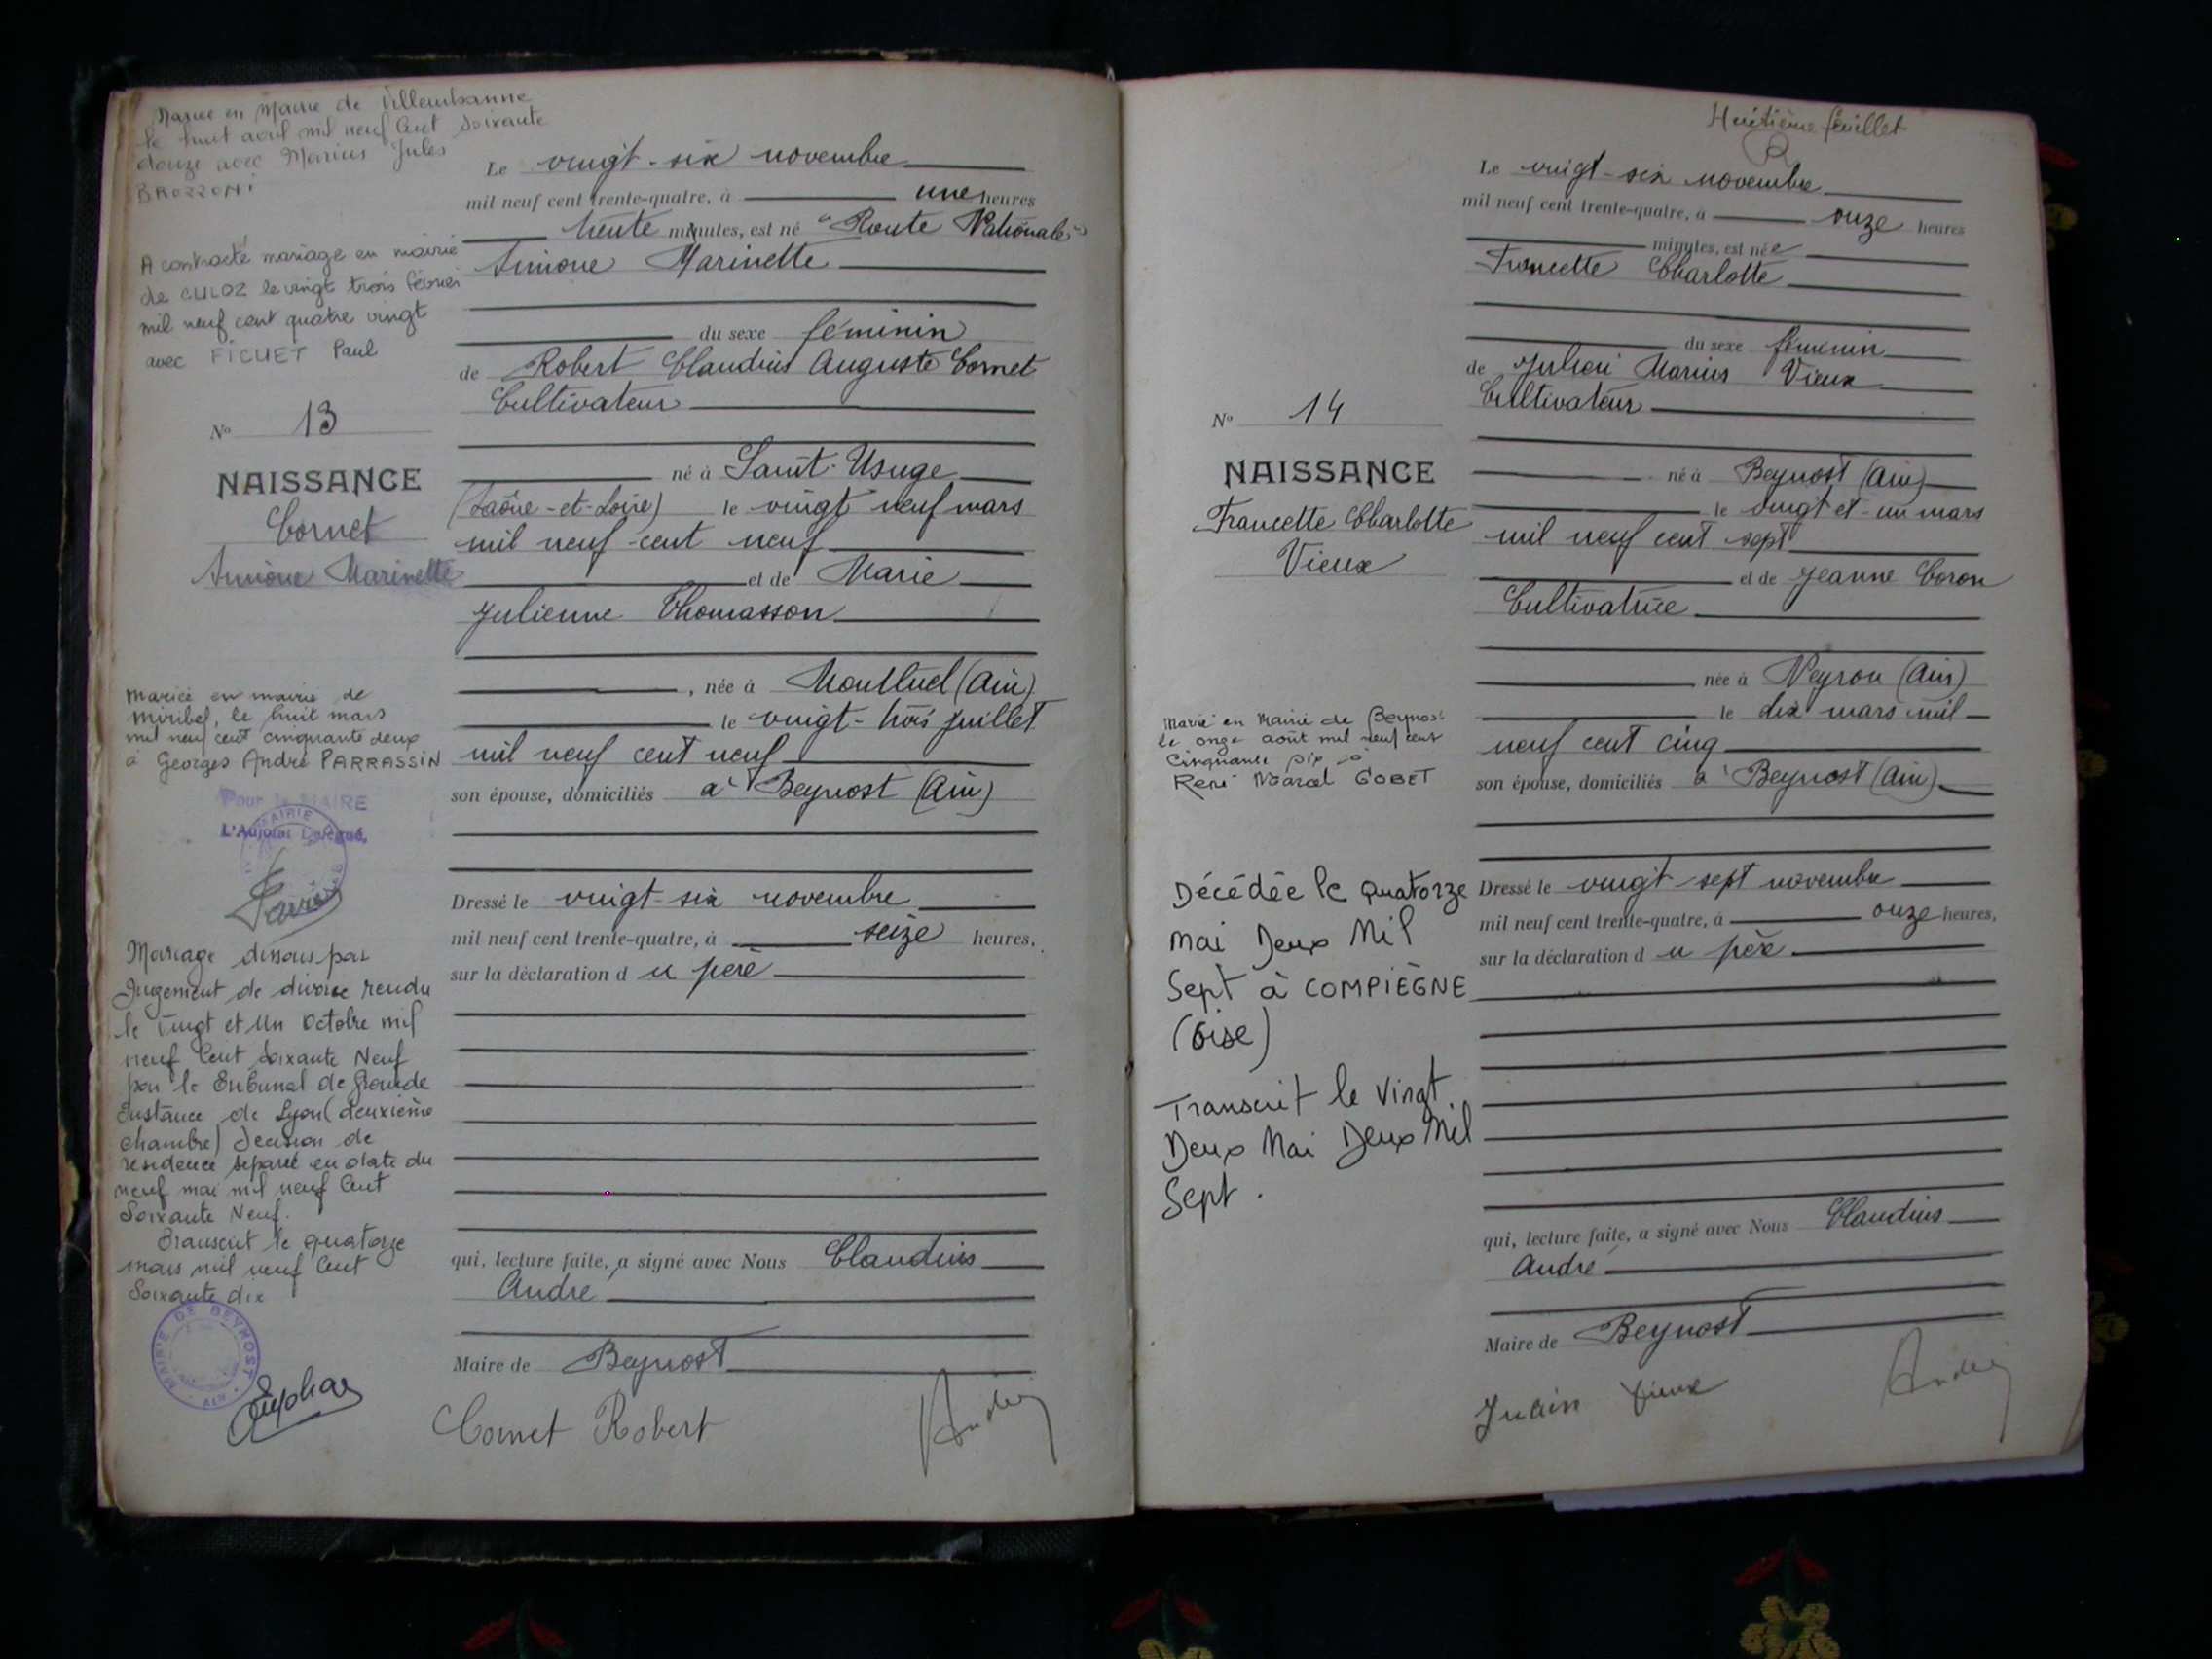 Mariée en Mairie de Villeurbanne
le huit avril mil neuf Cent Soixante
douze avec Marius Jules
BROZZONI
A contracté mariage en mairie
de CULOZ le vingt trois février
mil neuf cent quatre vingt
avec FICHET Paul
N° 13
NAISSANCE
Cornet
Simone Marinette
Mariée en mairie de
Miribel, le huit mars
mil neuf cent cinquante deux
à Georges André PARRASSIN
Pour le MAIRE
L'Adjoint Délégué,
Mariage dissous par
Jugement de divorce rendu
le Vingt et Un Octobre mil
neuf Cent Soixante Neuf
par le Tribunal de Grande
Instance de Lyon (deuxième
chambre) Décision de
résidence séparée en date du
neuf mai mil neuf Cent
Soixante Neuf.
Transcrit le quatorze
mars mil neuf Cent
Soixante dix
MAIRIE DE BEYNOST AIN
Le vingt-six novembre
mil neuf cent trente-quatre, à une heures
trente minutes, est né "Route Nationale"
Simone Marinette
du sexe féminin
de Robert Claudius Auguste Cornet
Cultivateur
né à Saint-Usuge
(Saône-et-Loire) le vingt neuf mars
mil neuf cent neuf
et de Marie
Julienne Thomasson
, née à Montluel (Ain)
le vingt-trois juillet
mil neuf cent neuf
son épouse, domiciliés à Beynost (Ain)
Dressé le vingt-six novembre
mil neuf cent trente-quatre, à seize heures,
sur la déclaration du père
qui, lecture faite, a signé avec Nous Claudius
André
Maire de Beynost
Cornet Robert
André
Huitième feuillet
N° 14
NAISSANCE
Francette Charlotte
Vieux
Marié en Mairie de Beynost
le onze août mil neuf cent
Cinquante six à
René Marcel GOBET
Décédée le quatorze
Mai Deux Mil
Sept à COMPIÈGNE
(Oise)
Transcrit le Vingt
Deux Mai Deux Mil
Sept.
Le vingt-six novembre
mil neuf cent trente-quatre, à onze heures
minutes, est née
Francette Charlotte
du sexe féminin
de Julien Marius Vieux
Cultivateur
né à Beynost (Ain)
le vingt et-un mars
mil neuf cent sept
et de Jeanne Coron
Cultivatrice
née à Neyron (Ain)
le dix mars mil
neuf cent cinq
son épouse, domiciliés à Beynost (Ain)
Dressé le vingt-sept novembre
mil neuf cent trente-quatre, à onze heures,
sur la déclaration du père
qui, lecture faite, a signé avec Nous Claudius
André
Maire de Beynost
Julien Vieux
André